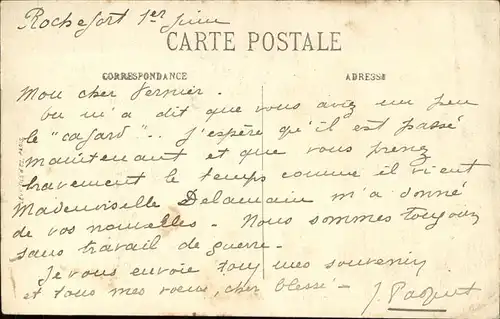 Rochefort 1er Juin
CARTE POSTALE
CORRESPONDANCE
ADRESSE
Mon cher Vernier.
On m'a dit que vous aviez un peu
le "cafard".. J'espère qu'il est passé
maintenant et que vous prenez
bravement le temps comme il vient
Mademoiselle Delamain m'a donné
de vos nouvelles - Nous sommes toujours
sans travail de guerre -
Je vous envoie tous mes souvenirs
et tous mes voeux, cher blessé -
J. Paquet